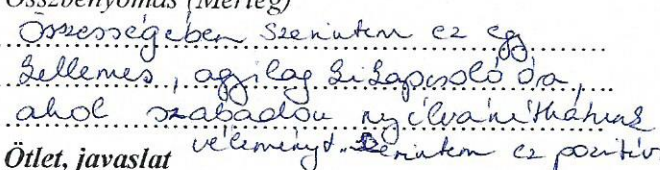 Összbenyomás (Mérleg)
Összességében szerintem ez egy
kellemes, agyilag kikapcsoló óra,
ahol szabadon nyilváníthatunk
véleményt. Szerintem ez pozitív.
Ötlet, javaslat